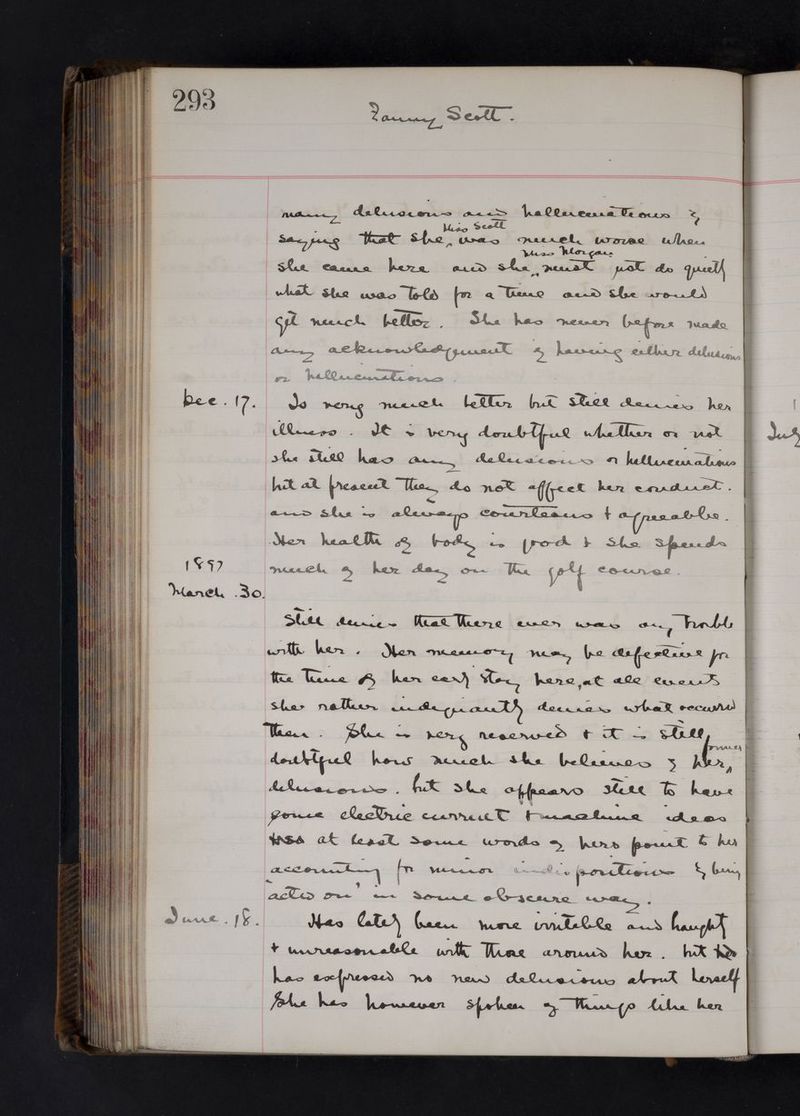 293
Fanny Scott.
many delusions and hallucinations by
Miss Scott
saying that she, was much worse when
Miss Morgan
she came here and she,, must just do quietly
what she was told for a time and she would
get much better. She has never before made
any acknowledgement of having either delusions
or hallucinations.
Dec. 17. Is very much better but still denies her
illness. It is very doubtful whether or not
she still has any delusions or hallucinations
but at present they do not affect her conduct.
and she is always courteous & agreeable.
Her health of body is good & she spends
1897 much of her day on the golf course.
March .30.
Still denies that there ever was any trouble
with her. Her memory may be defective for
the time of her early stay here, at all events
she rather indignantly denies what occurred
then. She is very reserved & it is still
former
doubtful how much she believes of her,
delusions. but she appears still to have
some electric current & machine ideas
at least some words of hers point to her
accounting for minor indispositions by being
'acted on' in some obscure way.
June. 18. Has lately been more irritable and haughty
& unreasonable with those around her. but
has expressed no new delusions about herself
She has however spoken of things like her
July